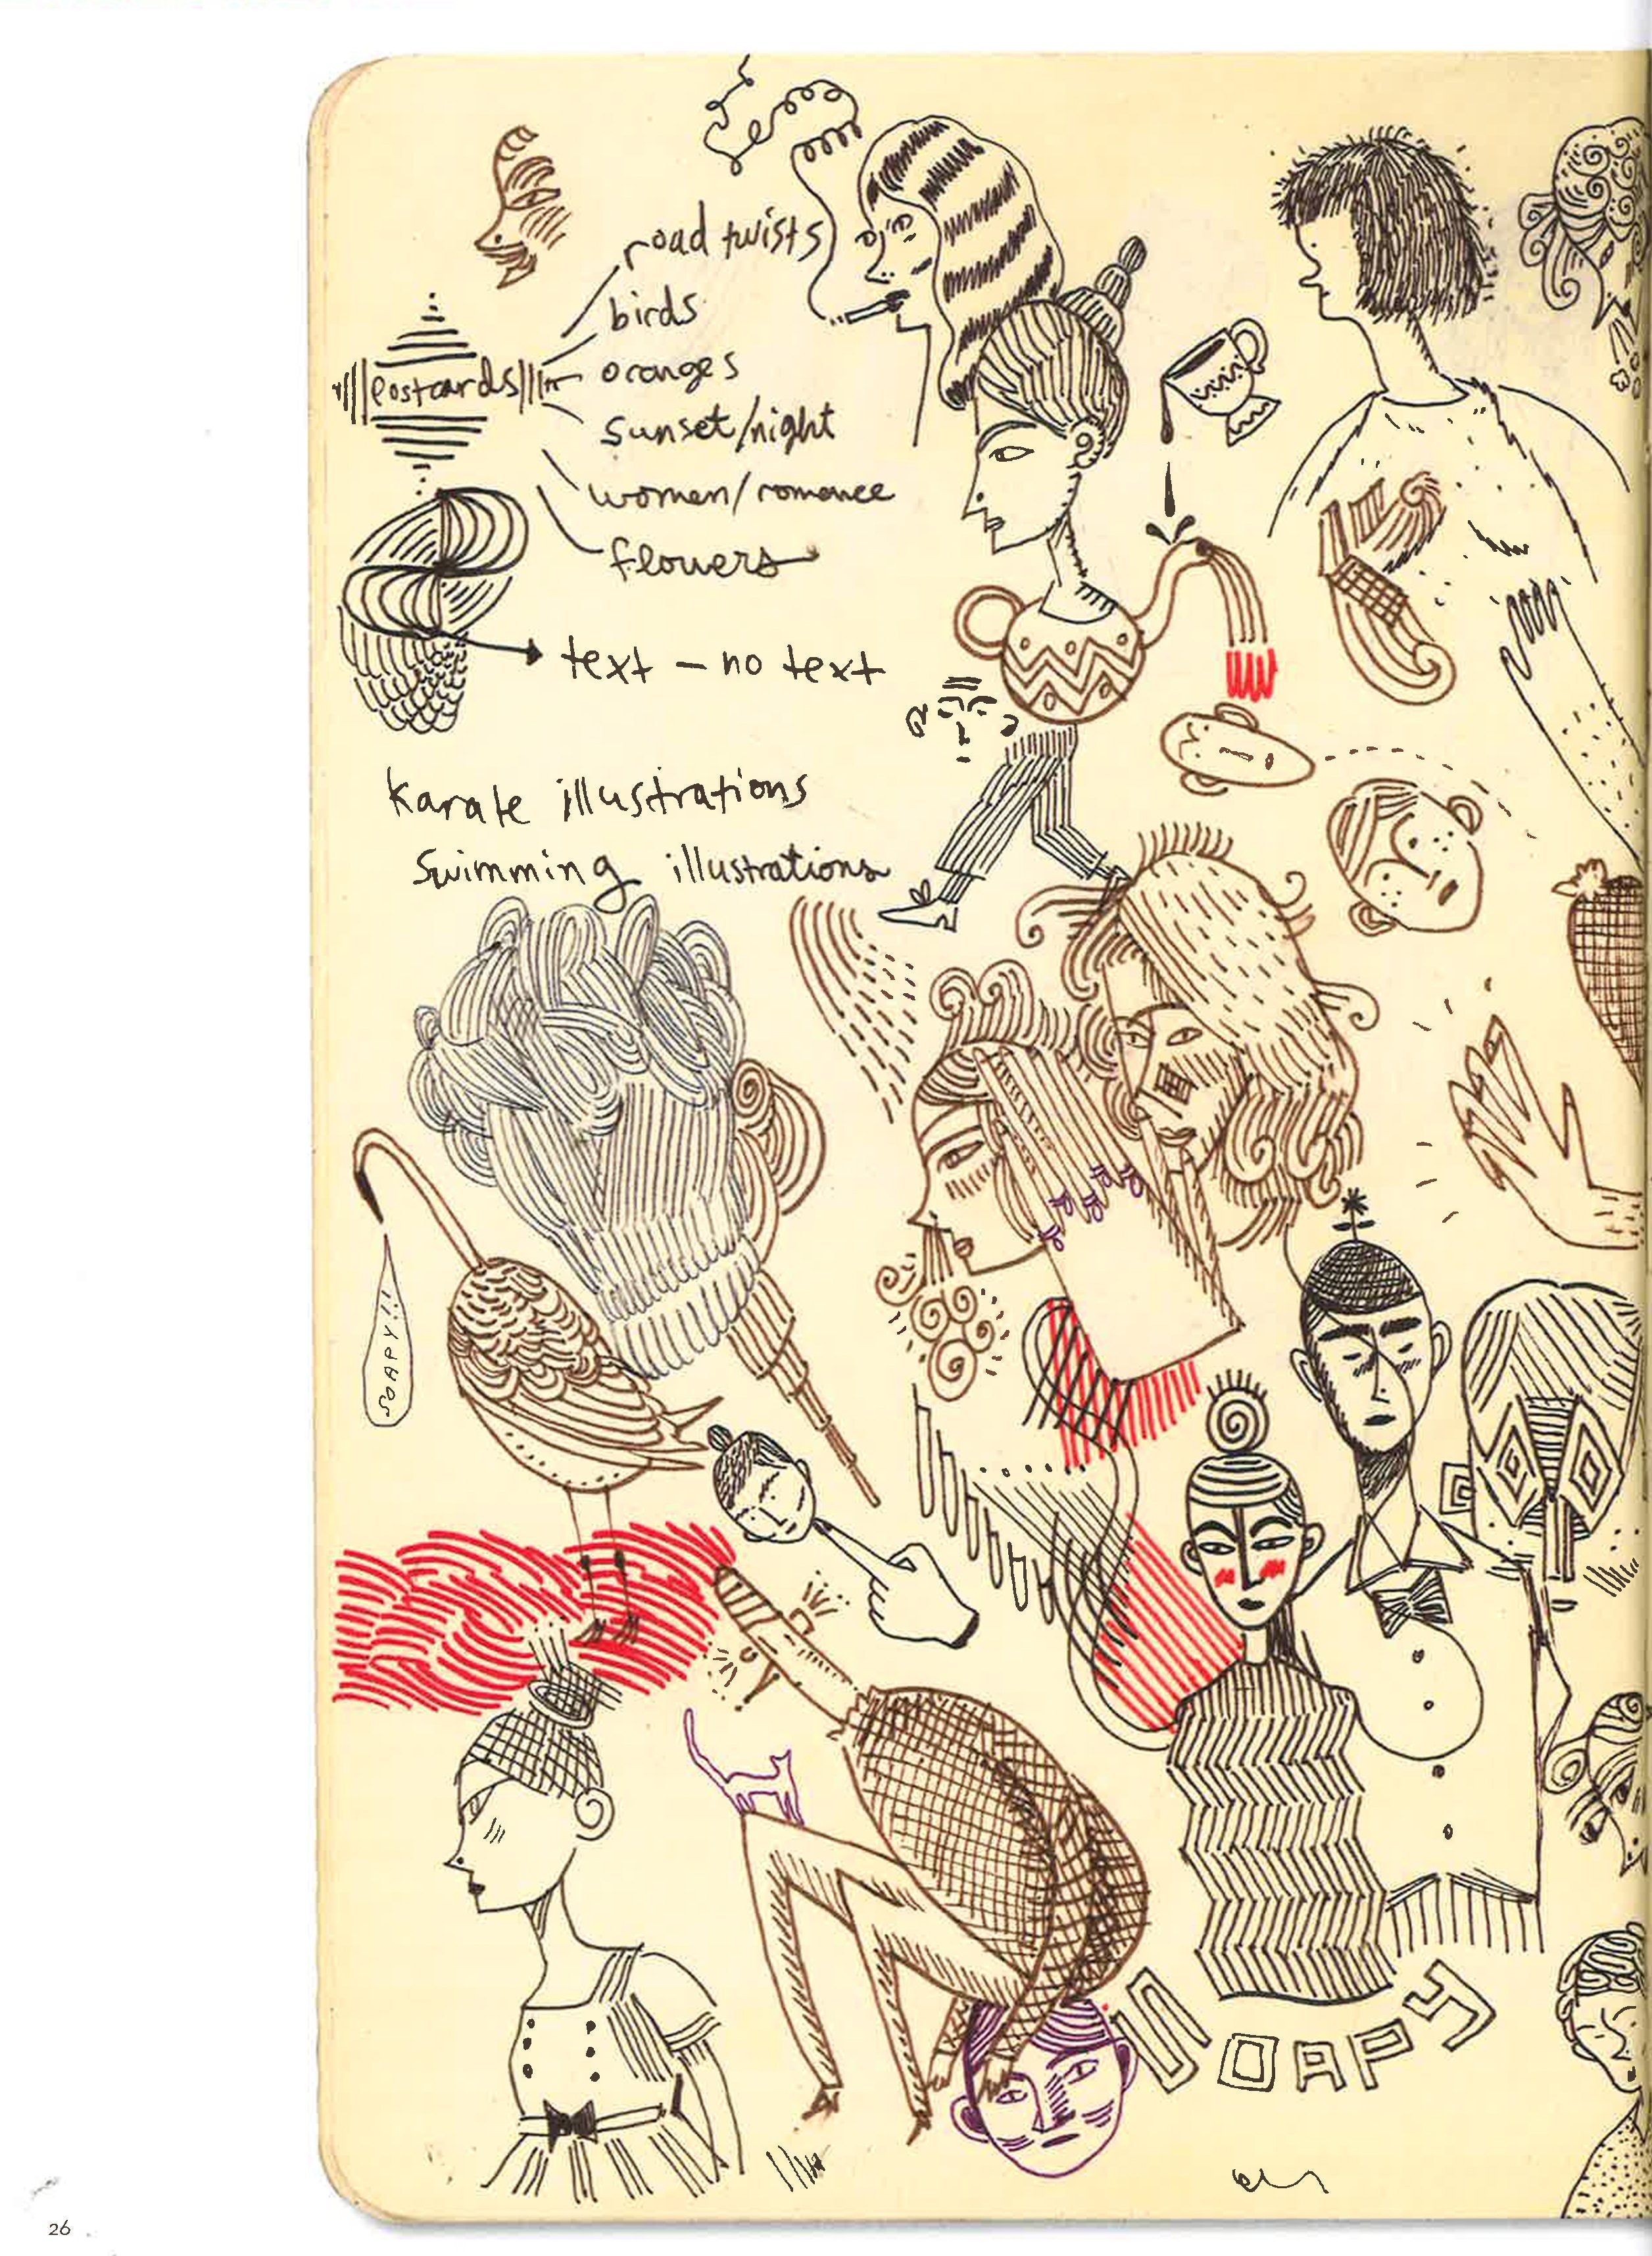 road twists
birds
postcards
oranges
sunset/night
women/romance
flowers
text — no text
Karate illustrations
Swimming illustrations
SOAPY
26